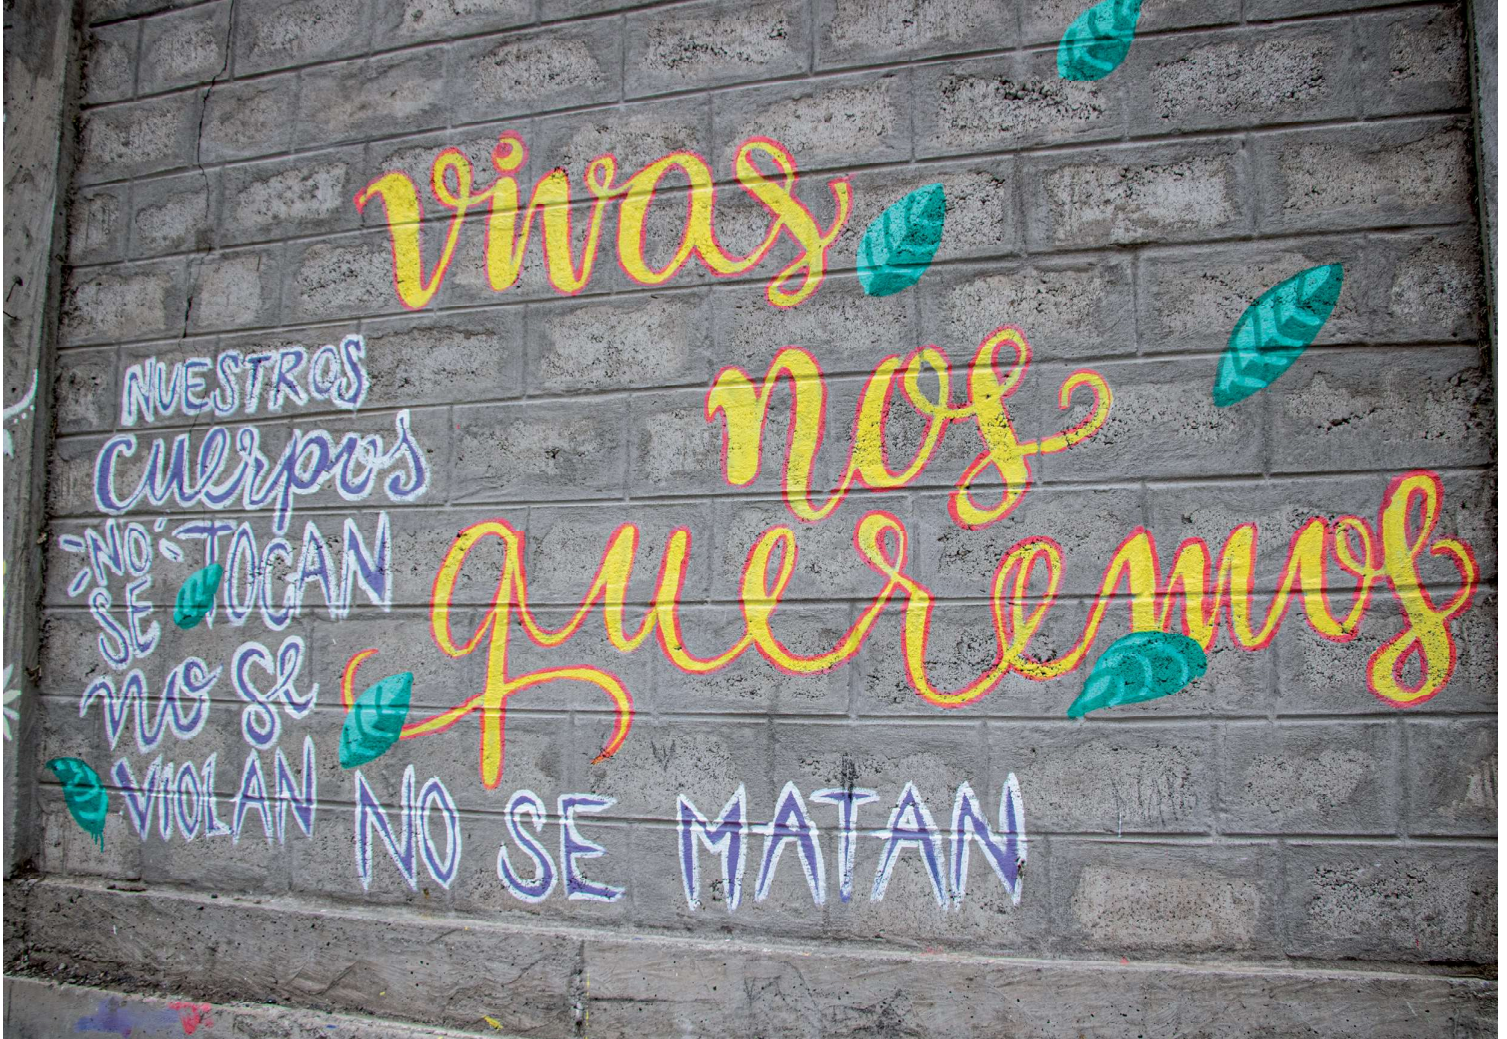 vivas
nos
queremos
NUESTROS
cuerpos
NO SE TOCAN
no se
VIOLAN NO SE MATAN